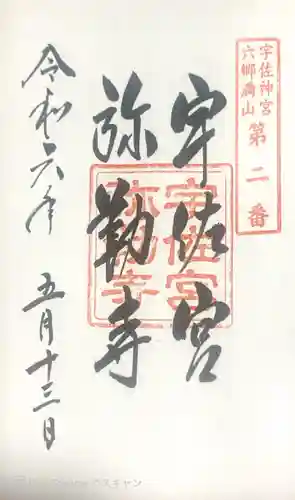 宇佐神宮
六郷満山
第二番
宇佐宮
弥勒寺
宇佐宮
弥勒寺
令和六年
五月十三日